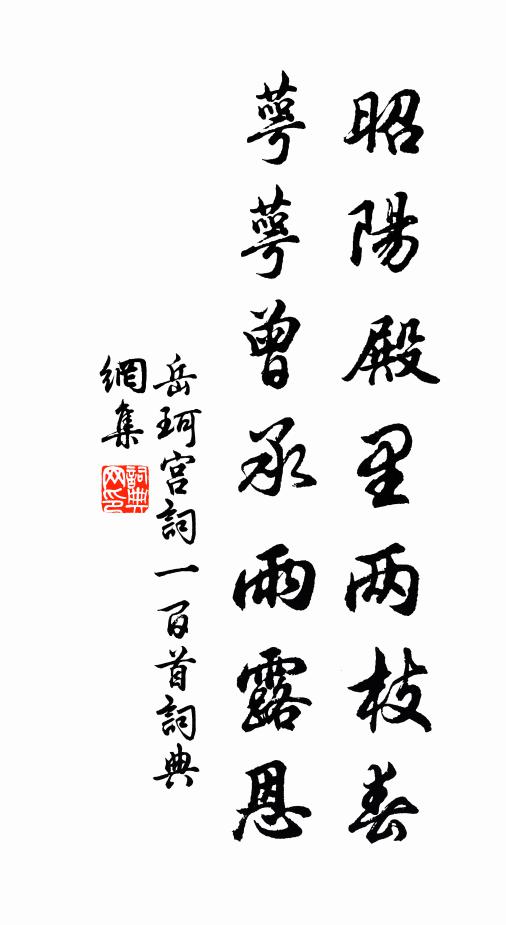 昭陽殿里两枝春
萼萼曾承雨露恩
岳珂宮詞一百首詞典
網集
詞典網印